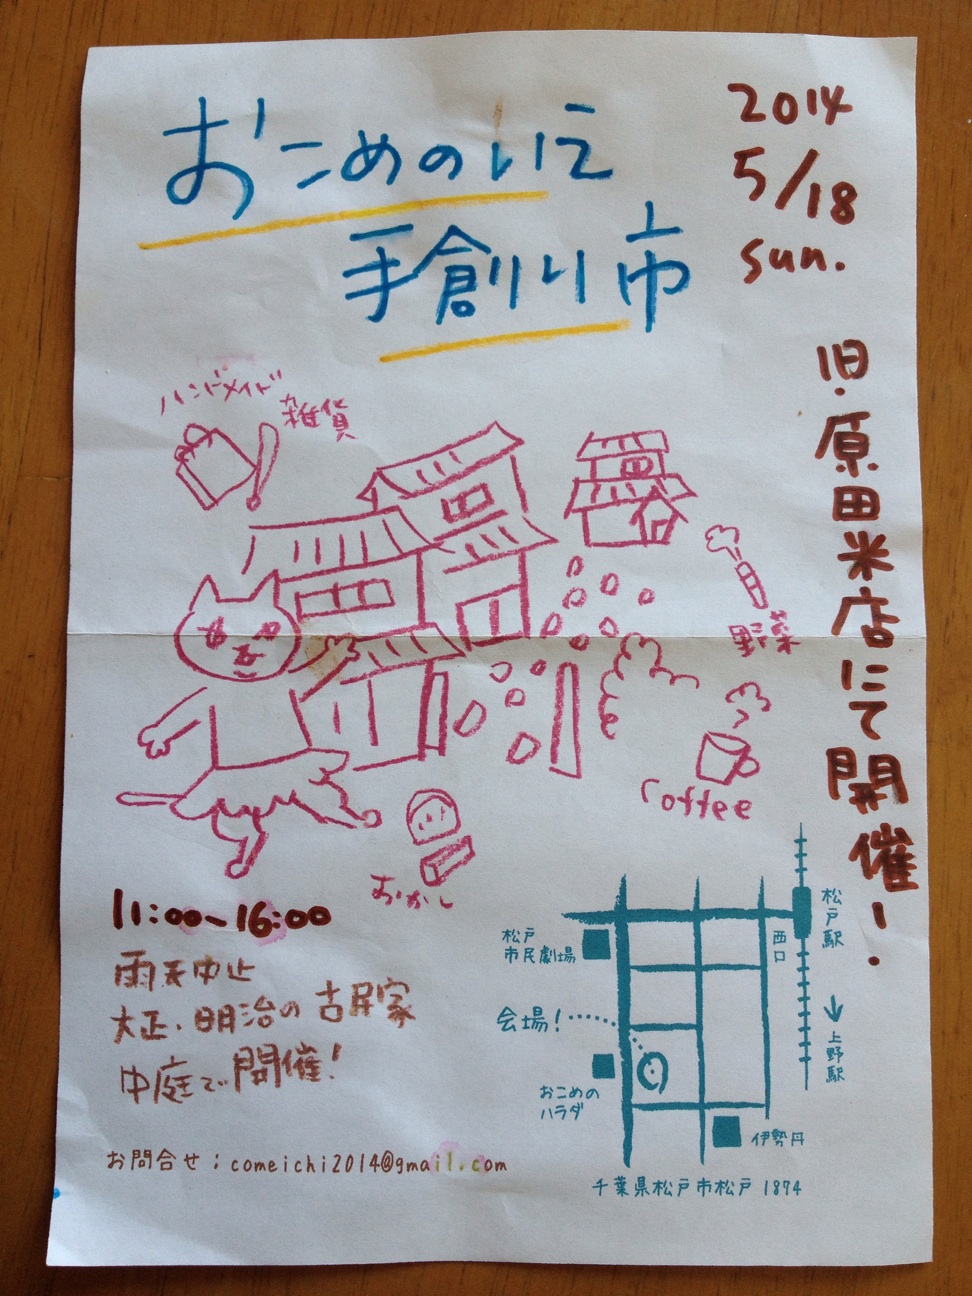 おこめのいえ
手創り市
2014
5/18
sun.
旧・原田米店にて開催!
ハンドメイド
雑貨
野菜
coffee
おかし
11:00~16:00
雨天中止
大正・明治の古民家
中庭で開催!
お問合せ:comeichi2014@gmail.com
松戸駅
西口
松戸
市民劇場
会場!
↓上野駅
おこめの
ハラダ
伊勢丹
千葉県松戸市松戸 1874